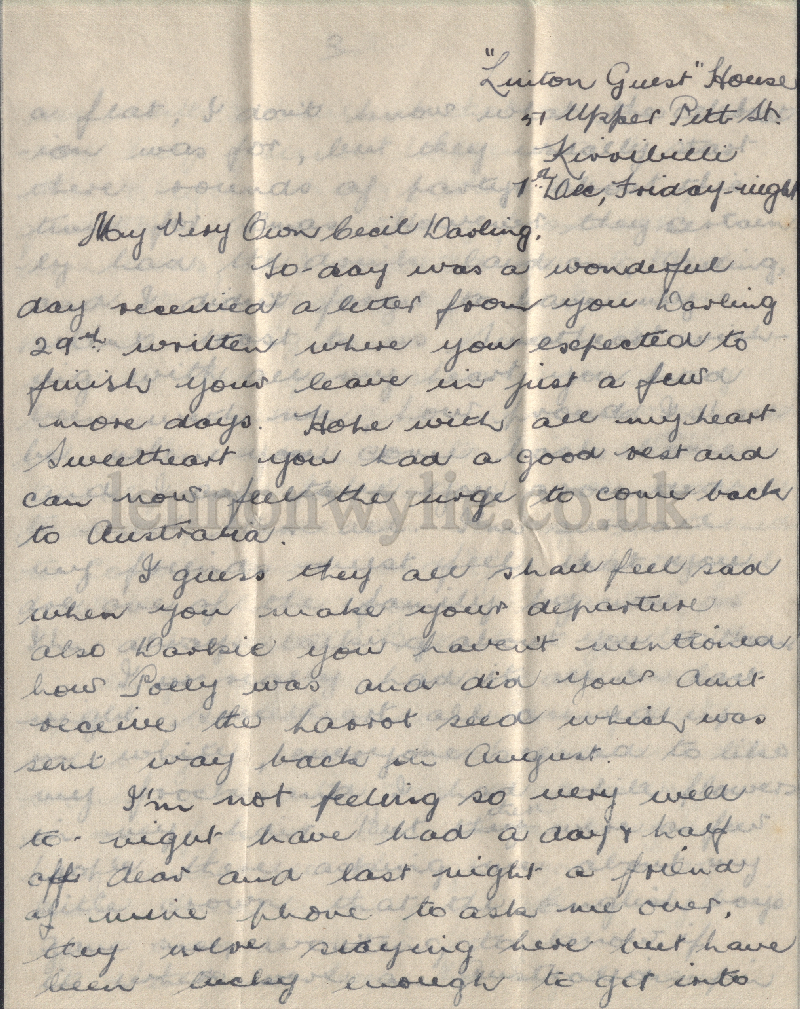 "Linton Guest" House
51 Upper Pitt St.
Kirribilli
1st Dec, Friday-night
My Very Own Cecil Darling,
To-day was a wonderful
day received a letter from you Darling
29th written where you expected to
finish your leave in just a few
more days. Hope with all my heart
Sweetheart you had a good rest and
can now feel the urge to come back
to Australia.
I guess they all shall feel sad
when you make your departure
also Darkie you haven't mentioned
how Polly was and did your Aunt
receive the parrot seed which was
sent way back in August.
I'm not feeling so very well
to-night have had a day & half
off dear and last night a friend
of mine phone to ask me over,
they were staying here but have
been lucky enough to get into
lennonwylie.co.uk